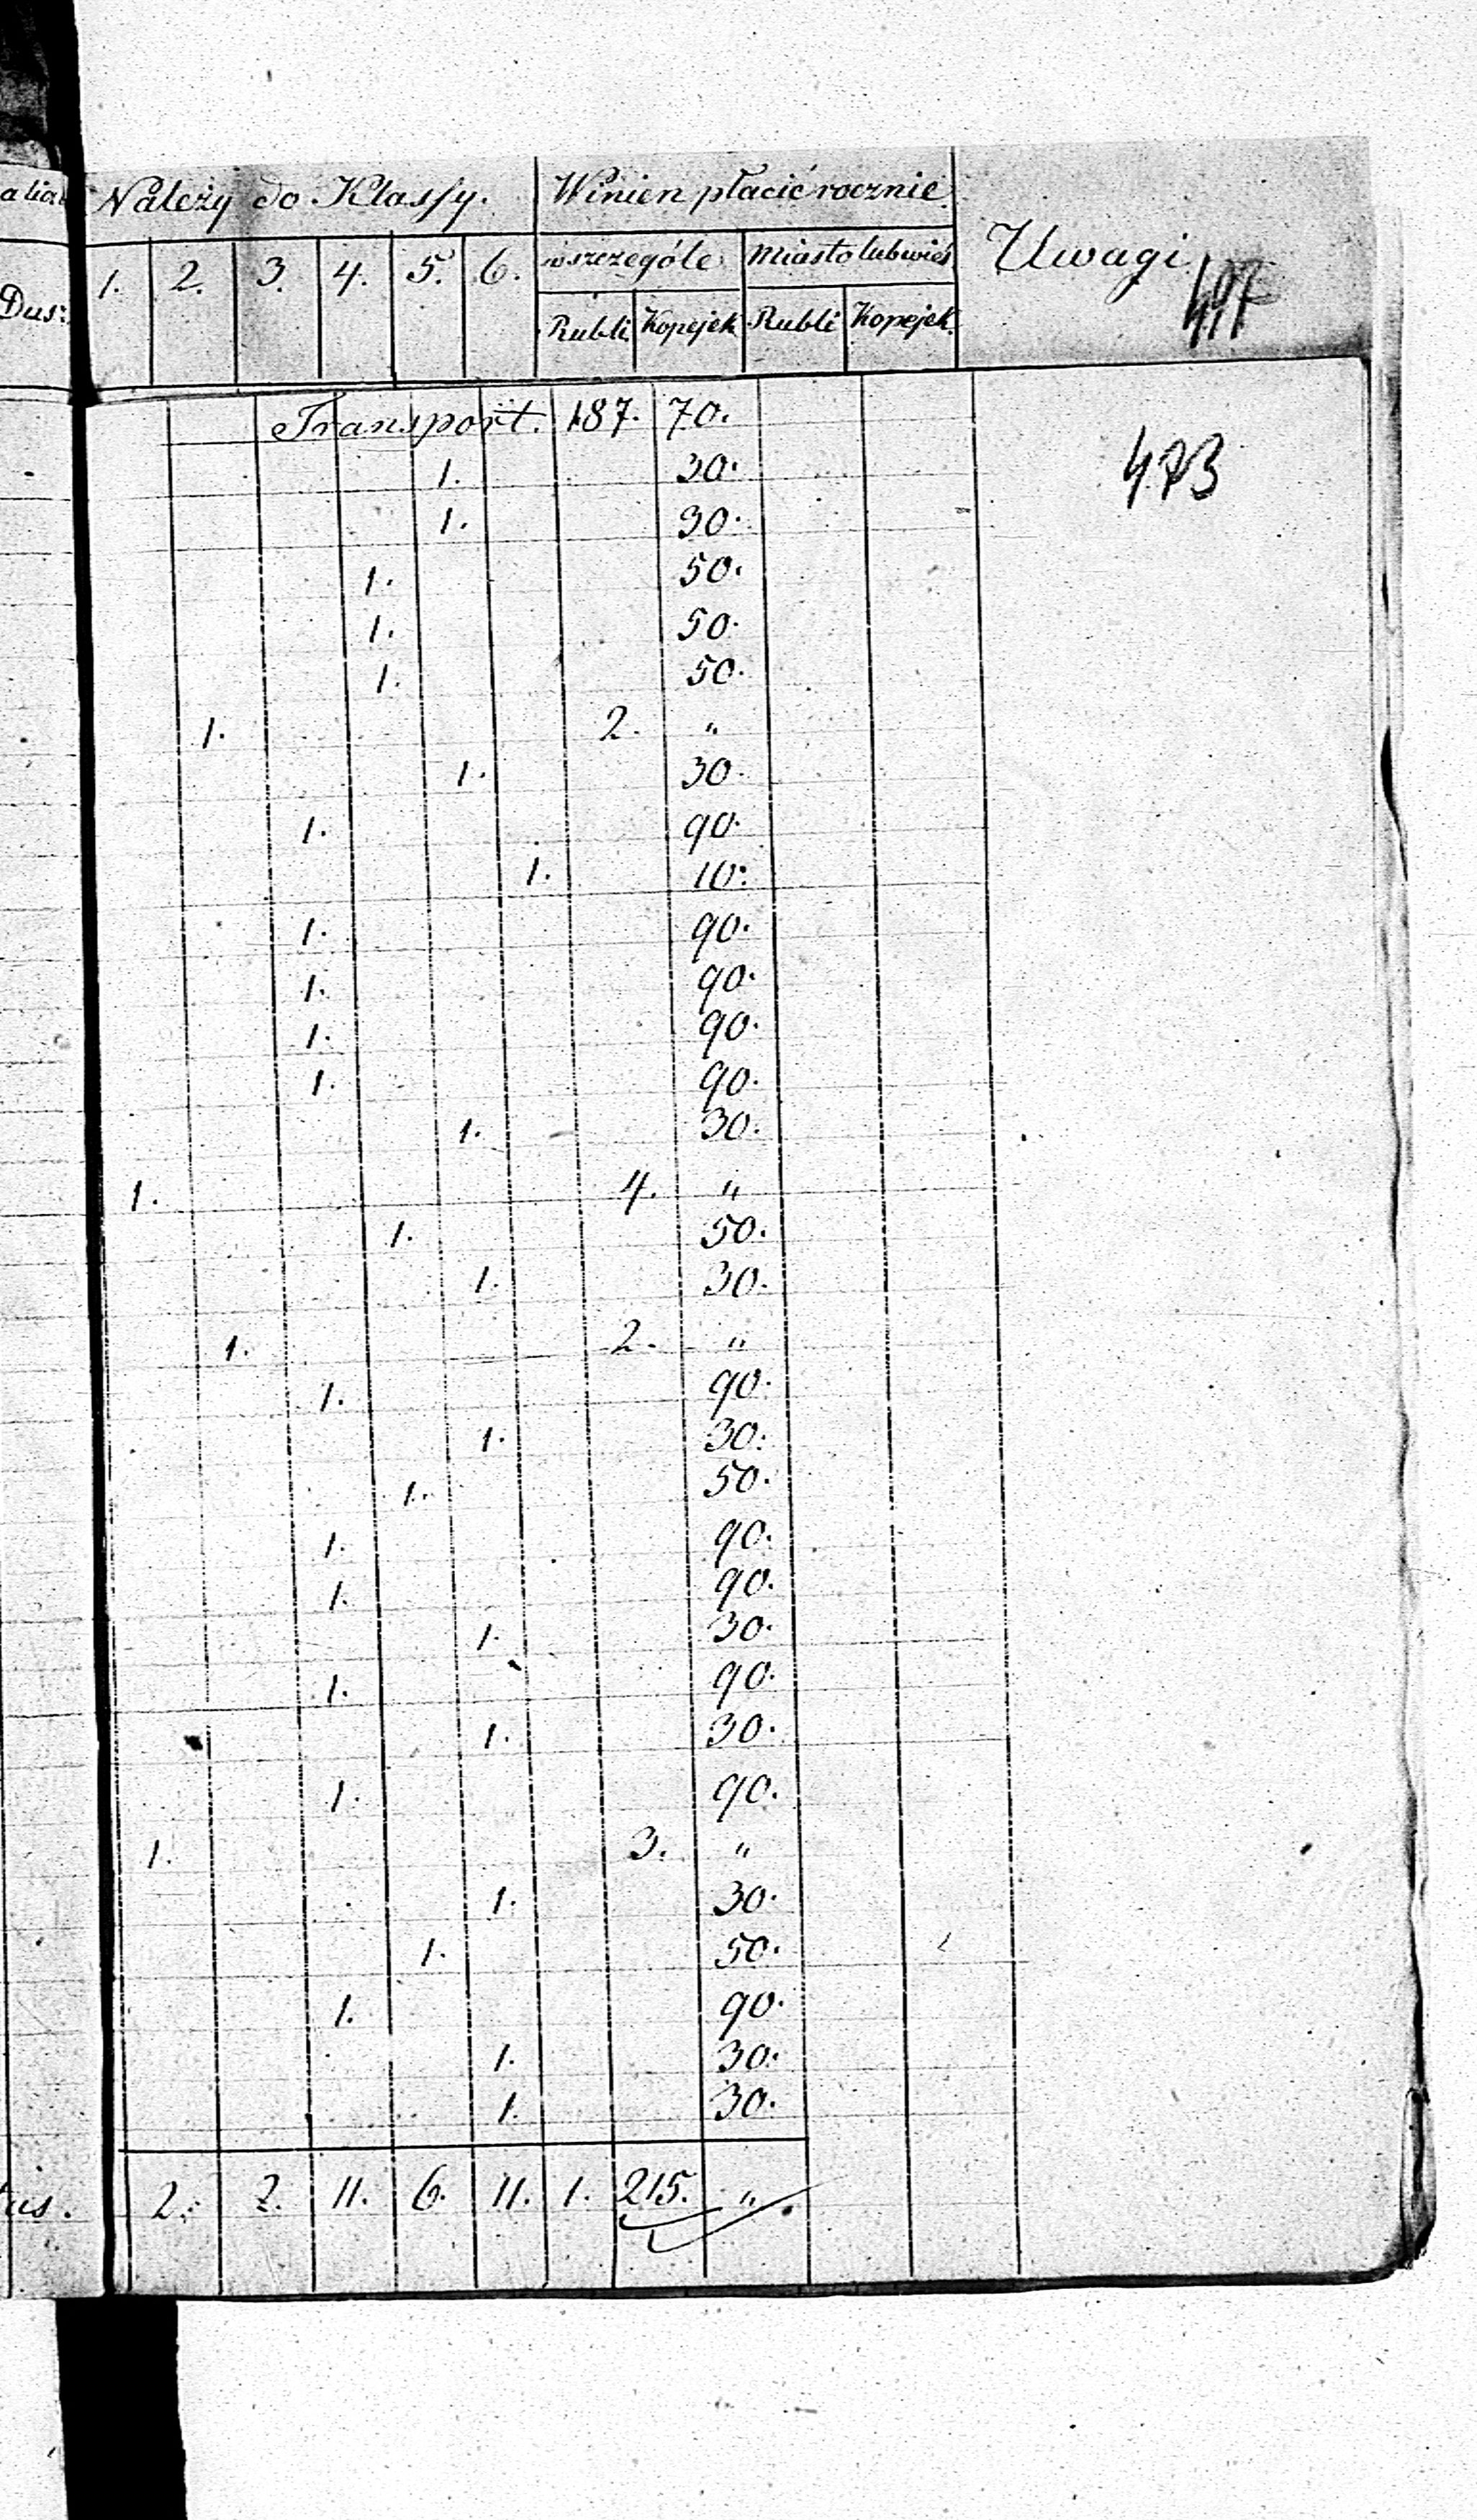 Należy do Klassy. Winien płacić rocznie Uwagi
1. 2. 3. 4. 5. 6. w szczególe Miasto lub wieś
Dusz
Rubli Kopejek Rubli Kopejek
Transport. 187. 70.
473
1. 30.
1. 30.
1. 50.
1. 50.
1. 50.
1. 2. "
1. 30.
1. 90.
1. 10.
1. 90.
1. 90.
1. 90.
1. 90.
1. 30.
1. 4. "
1. 50.
1. 30.
1. 2. "
1. 90.
1. 30.
1. 50.
1. 90.
1. 90.
1. 30.
1. 90.
1. 30.
1. 90.
1. 3. "
1. 30.
1. 50.
1. 90.
1. 30.
1. 30.
2. 2. 11. 6. 11. 1. 215. "